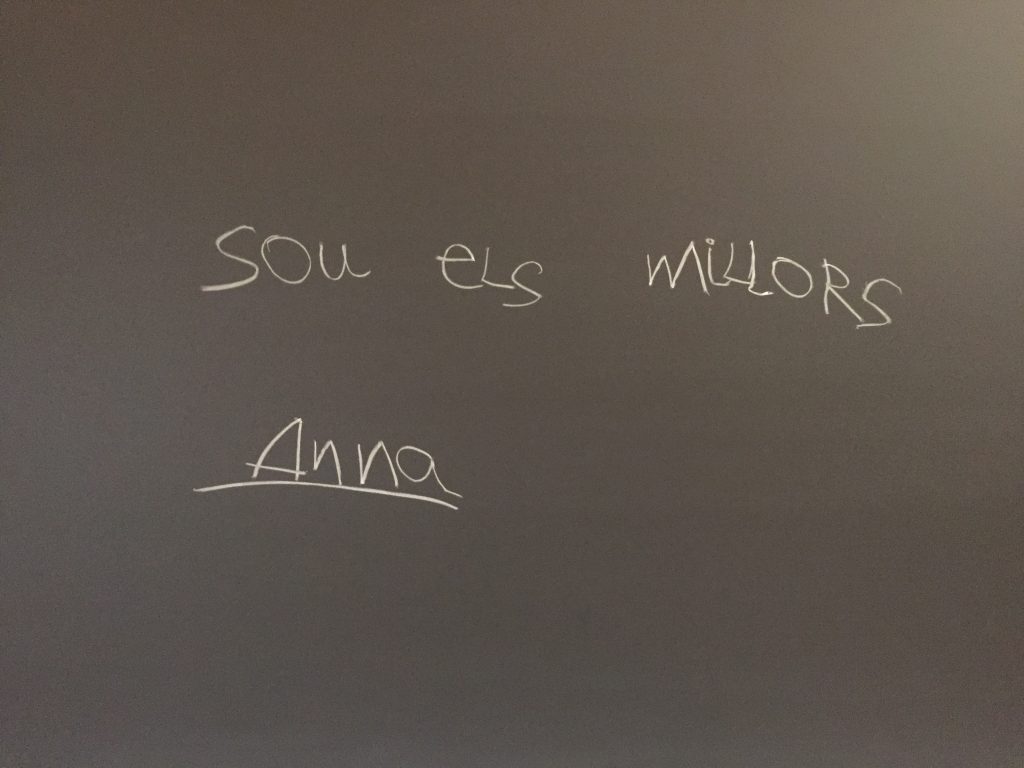 SOU eLS MiLLORS
Anna